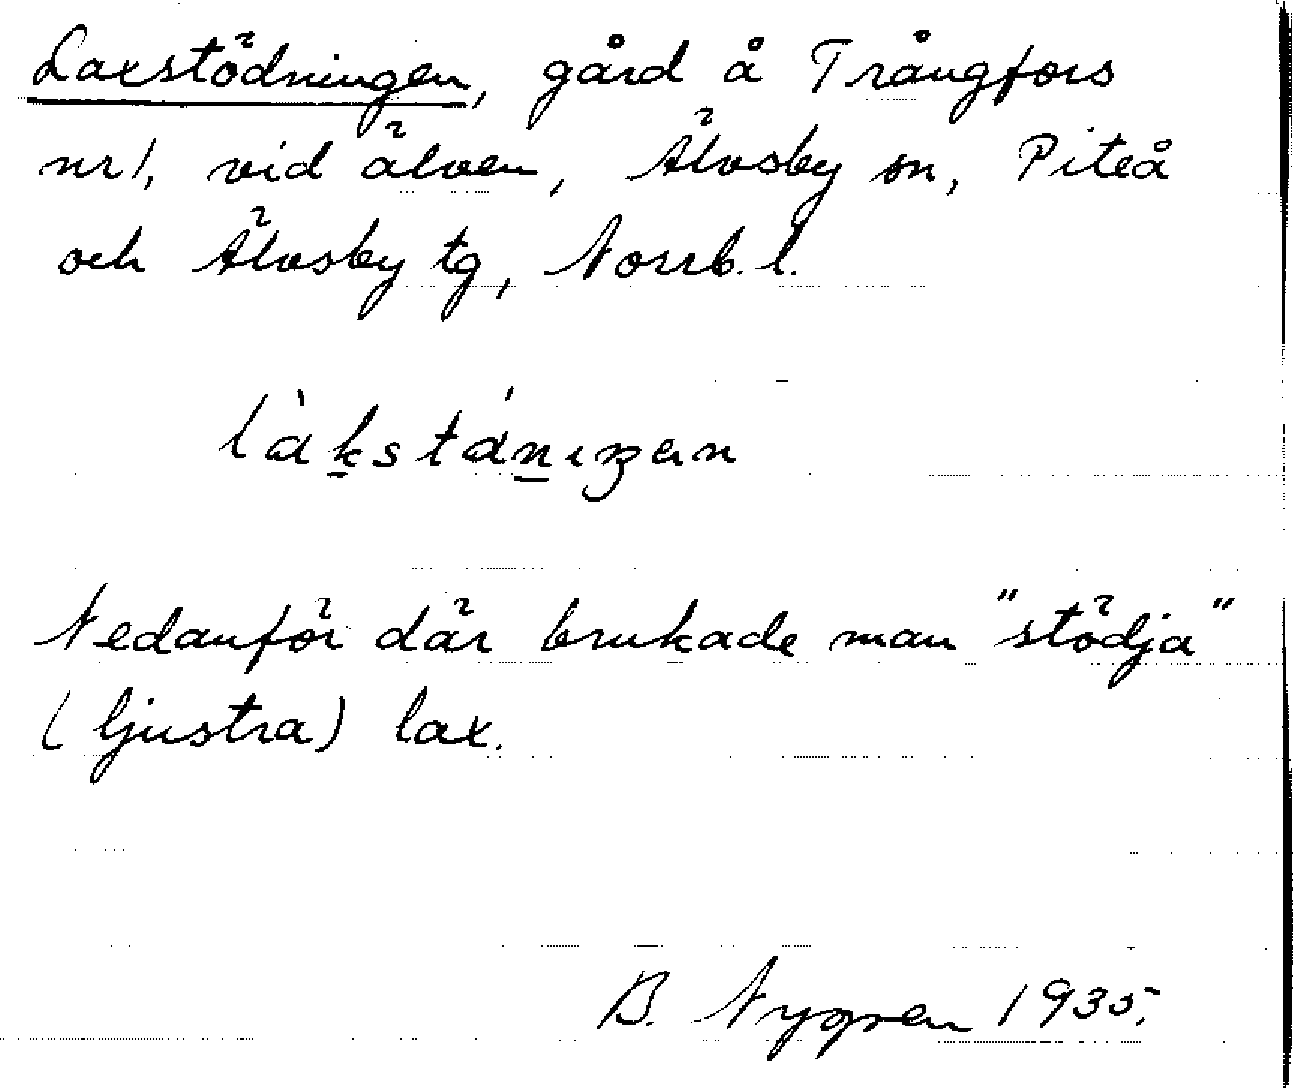 Laxstödningen, gård å Trångfors
nr 1, vid älven, Älvsby sn, Piteå
och Älvsby tg, Norrb. l.
Nedanför där brukade man "stödja"
(ljustra) lax.
B. Nygren 1935.